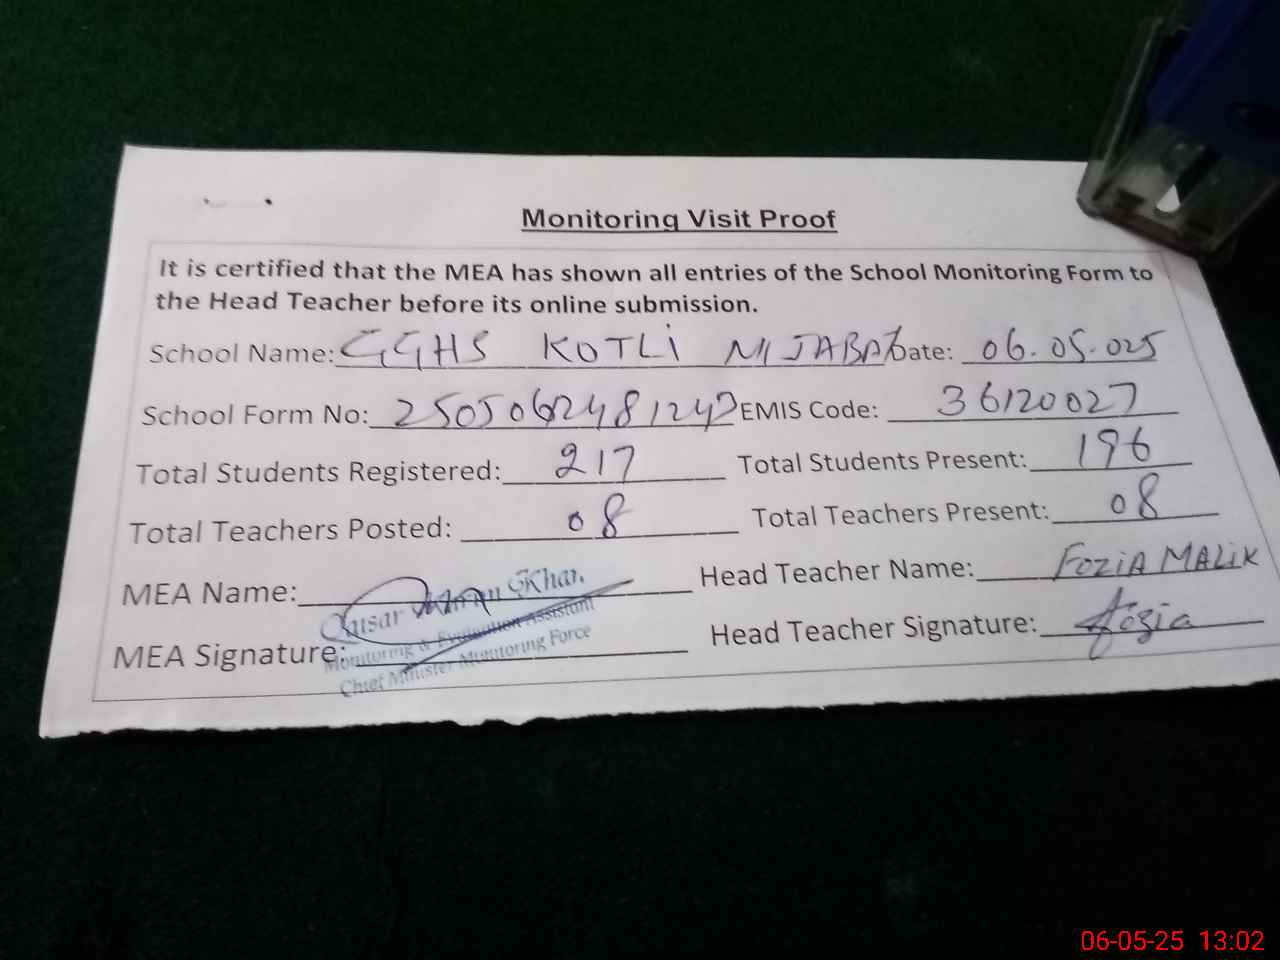 Monitoring Visit Proof
It is certified that the MEA has shown all entries of the School Monitoring Form to
the Head Teacher before its online submission.
School Name: GGHS KOTLI Date: 06.05.025
School Form No: EMIS Code: 36120027
Total Students Registered: 217 Total Students Present: 196
Total Teachers Posted: 08 Total Teachers Present: 08
MEA Name: Head Teacher Name: FOZiA MALiK
Khan
MEA Signature: Head Teacher Signature: fozia
Monitoring & Evaluation Assistant
Chief Minister Monitoring Force
06-05-25 13:02